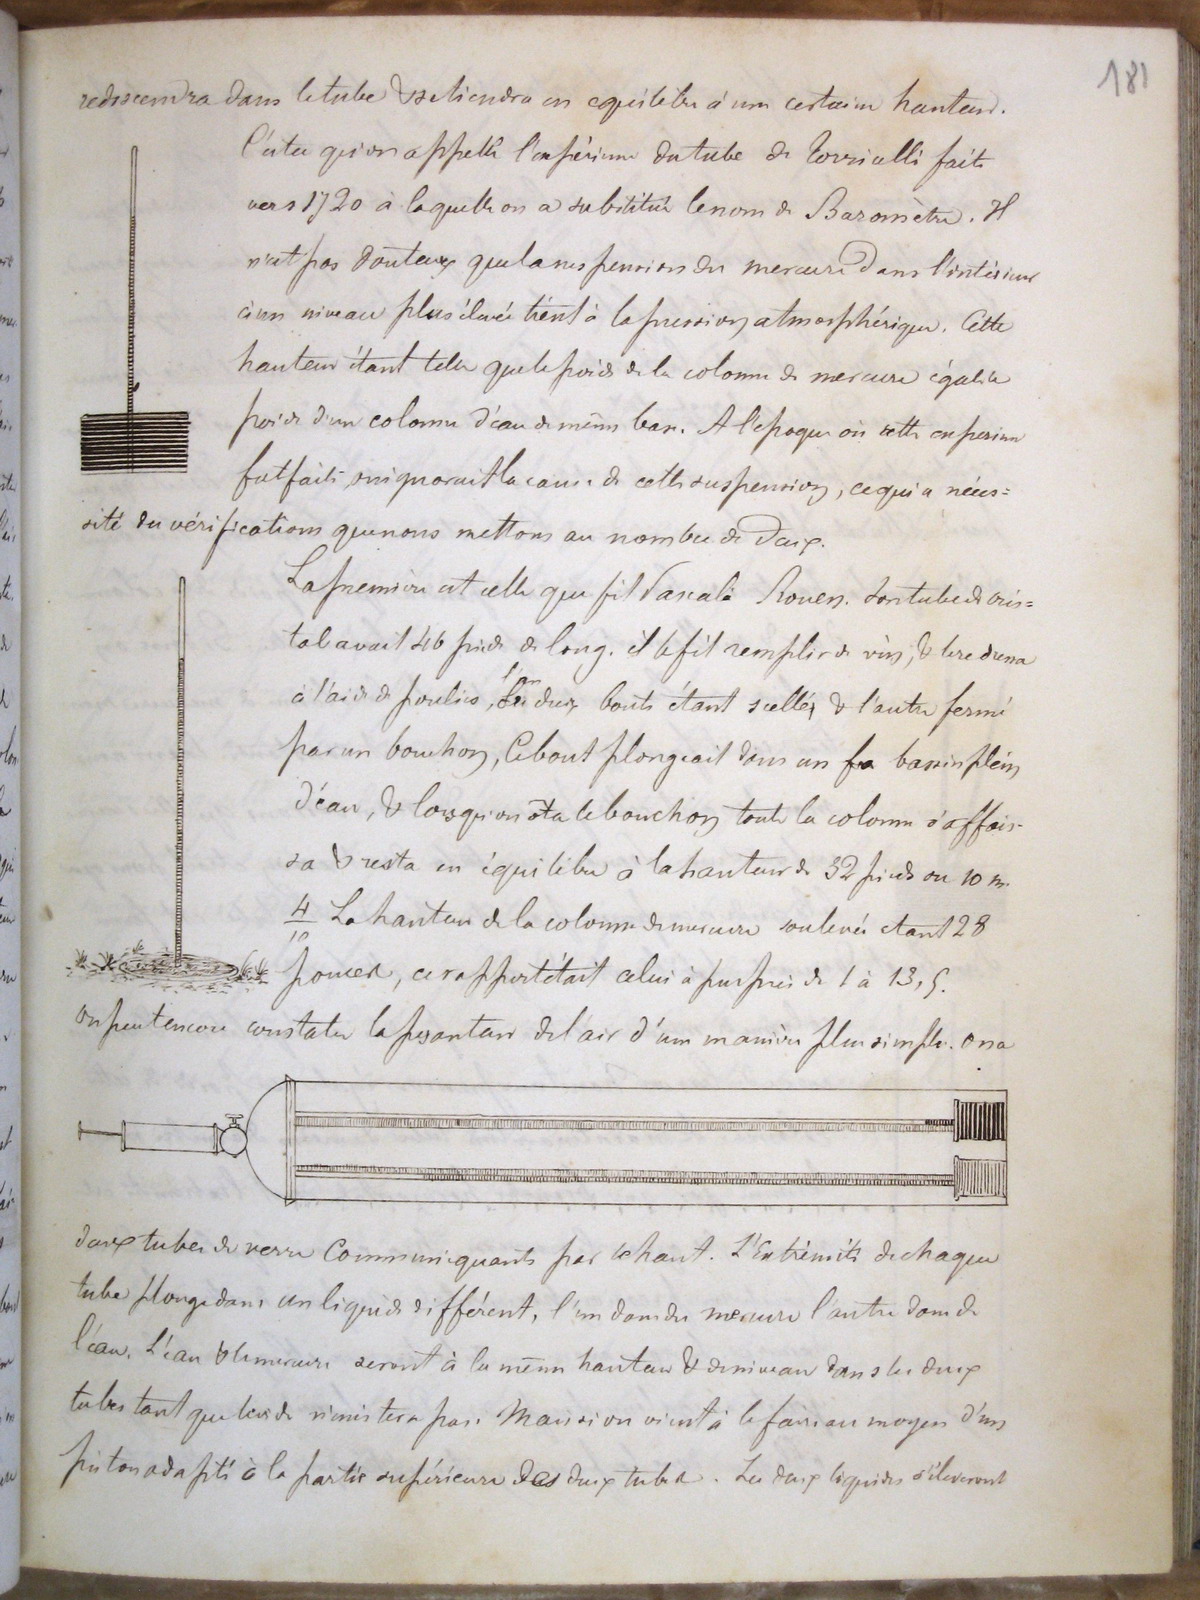 181
redescendra dans le tube & se tiendra en equilibre à une certaine hauteur.
C'est ce qu'on appelle l'expérience du tube de Torricelli faite
vers 1720 à laquelle on a substitué le nom de Baromètre. Il
n'est pas douteux que la suspension du mercure dans l'intérieur
à un niveau plus élevée tient à la pression atmosphérique. Cette
hauteur étant telle que le poids de la colonne de mercure égale le
poids d'une colonne d'eau de même base. A l'epoque où cette experience
fut faite on ignorait la cause de cette suspension, ce qui a néces=
sité des vérifications que nous mettons au nombre de Deux.
La première est celle que fit Pascal à Rouen. Son tube de cris=
tal avait 46 pieds de long. il le fit remplir de vin, & le redressa
à l'aide de poulies, l'un des deux bouts étant scellé & l'autre fermé
par un bouchon, Ce bout plongeait dans un bassin plein
d'eau, & lorsqu'on ôta le bouchon toute la colonne s'affais-
sa & resta en équilibre à la hauteur de 32 pieds ou 10 m.
4/10 La hauteur de la colonne de mercure soulevée etant 28
pouces, ce rapport était celui à peu près de 1 à 13,5.
On peut encore constater la pesanteur de l'air d'une manière plus simple. On a
deux tubes de verre Communiquants par le haut. L'Extrémité de chaque
tube plonge dans un liquide différent, l'un dans du mercure l'autre dans de
l'eau. L'eau & le mercure seront à la même hauteur & de niveau dans les deux
tubes tant que le vide n'existera pas. Mais si on vient à le faire au moyen d'un
piston adapté à la partie supérieure des deux tubes. Les deux liquides s'éleveront